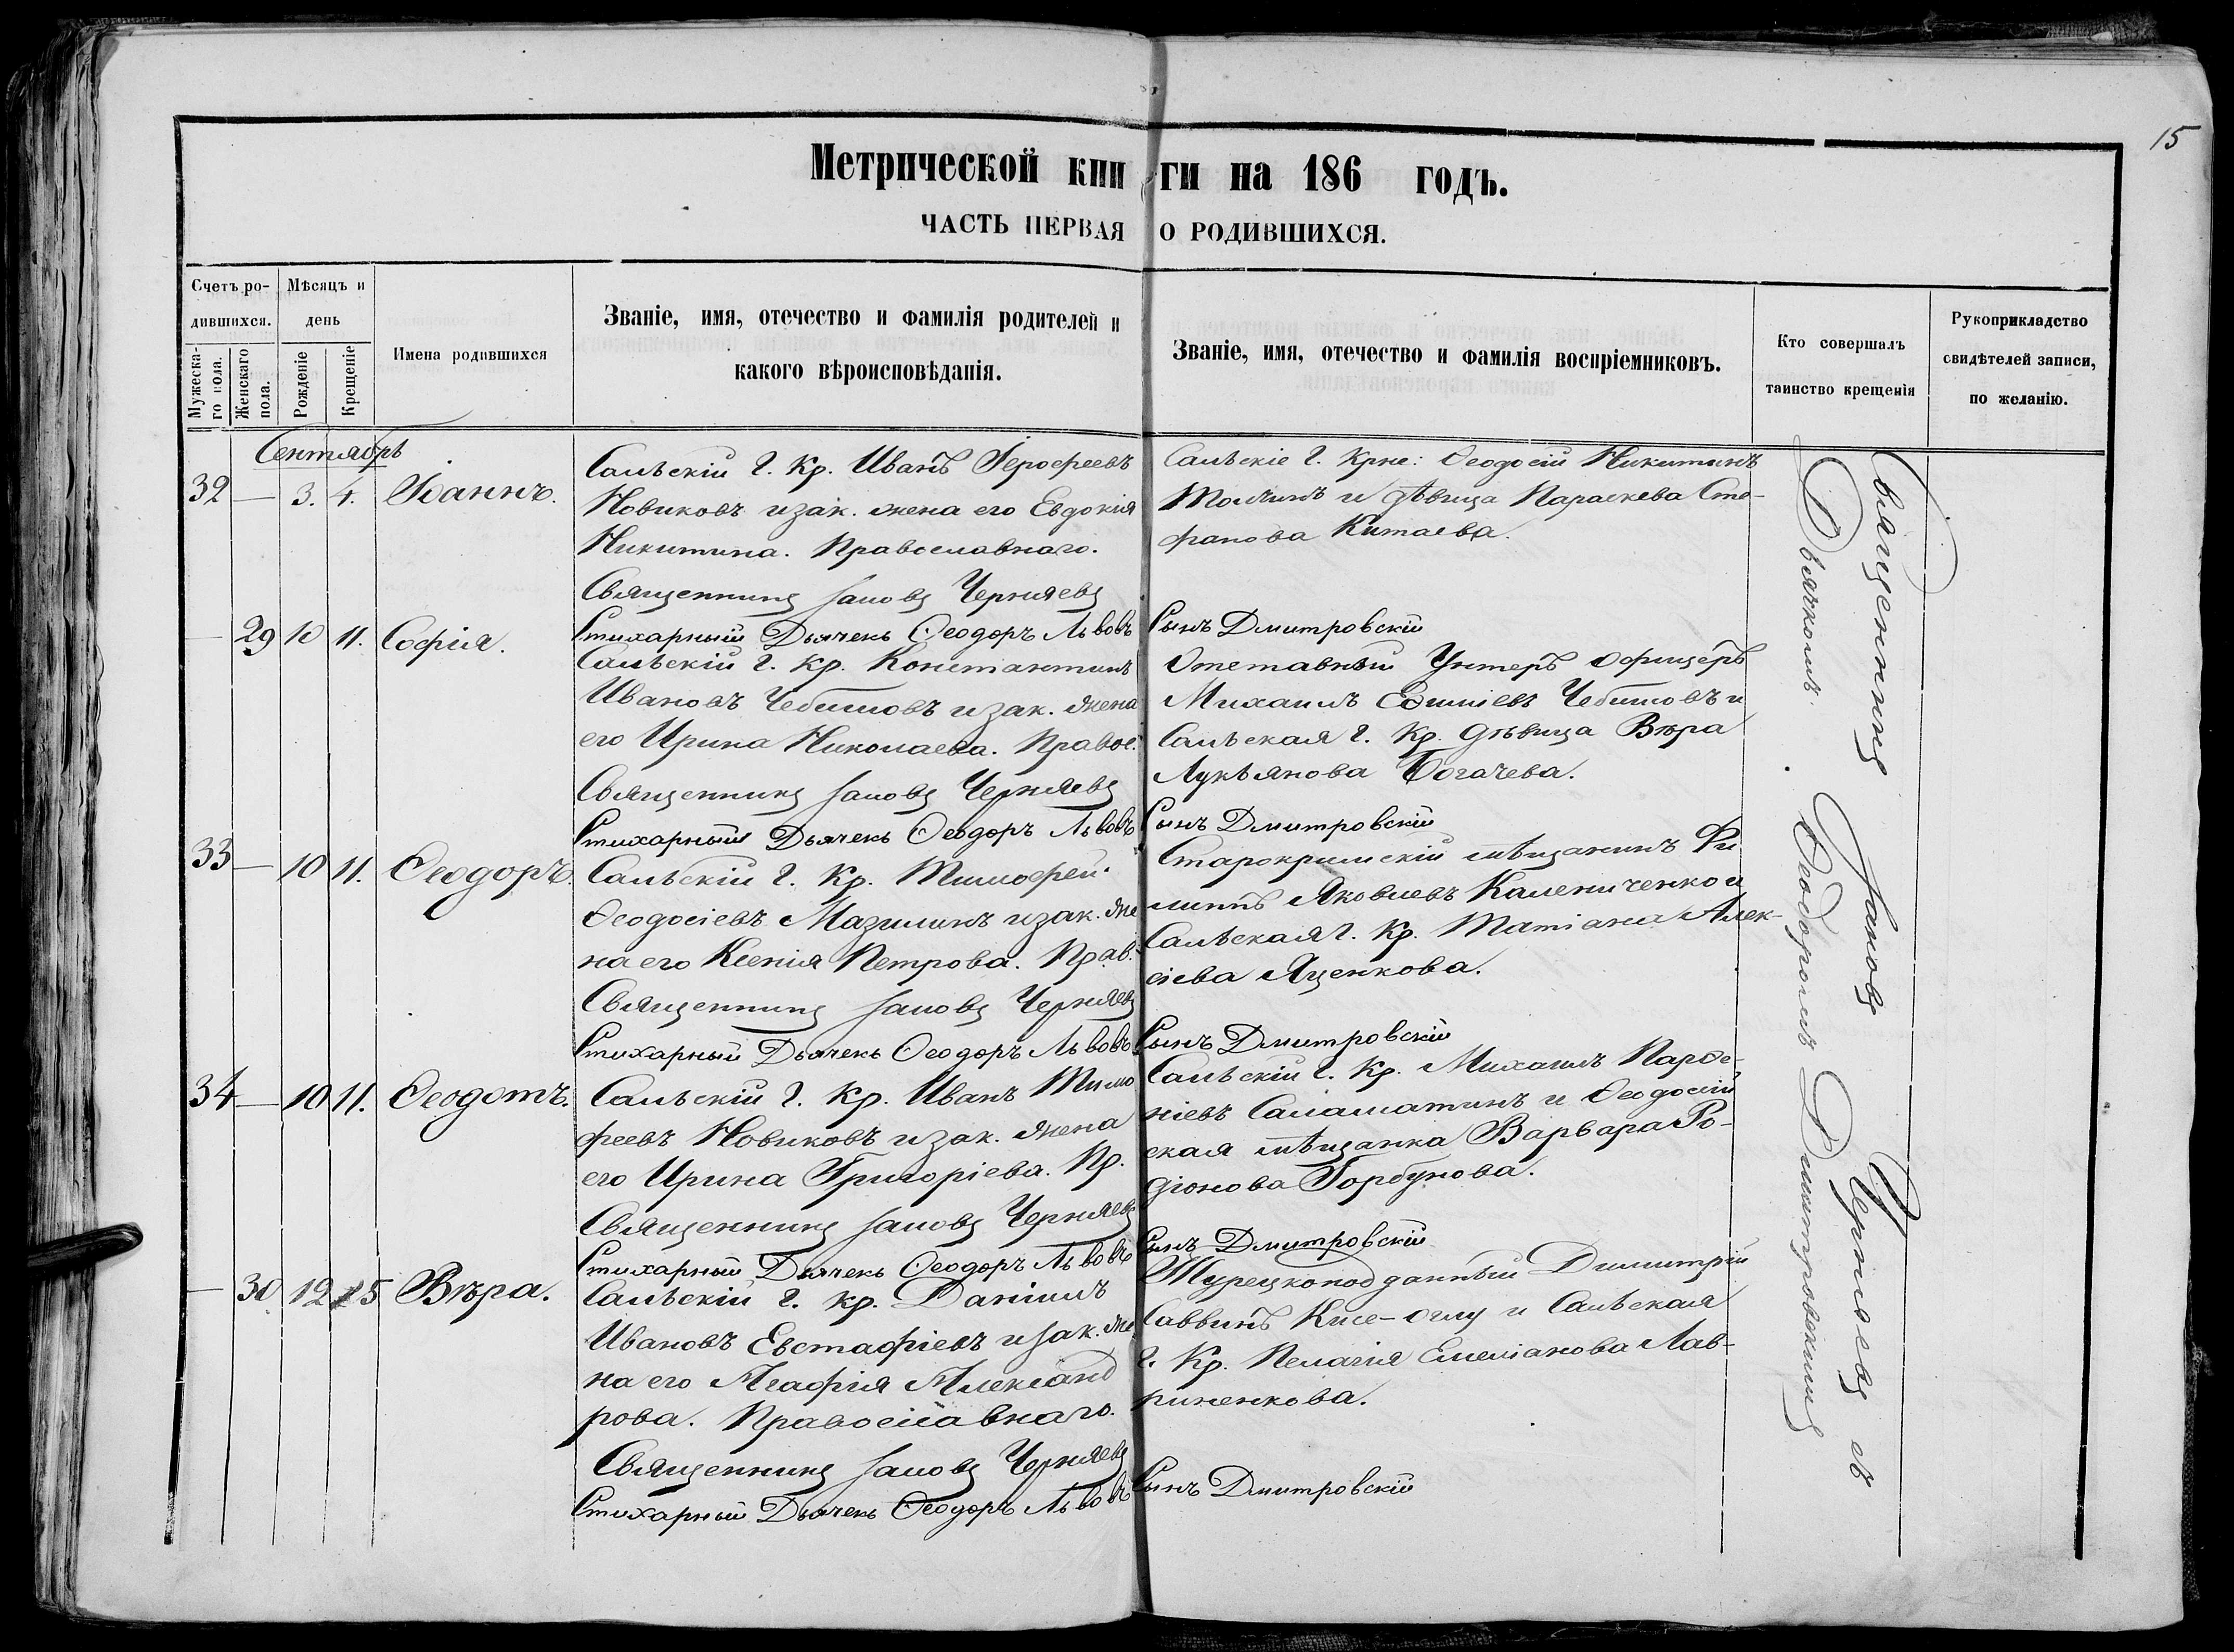 15
Метрической книги на 186 годъ.
ЧАСТЬ ПЕРВАЯ О РОДИВШИХСЯ.
Счетъ родившихся.
Мужескаго пола.
Женскаго пола.
Мѣсяцъ и день
Рожденіе
Крещеніе
Имена родившихся
Званіе, имя, отечество и фамилія родителей и
какого вѣроисповѣданія.
Званіе, имя, отечество и фамилія воспріемниковъ.
Кто совершалъ
таинство крещенія
Рукоприкладство
свидѣтелей записи,
по желанію.
Сентябрь
32 — 3. 4. Іоаннъ.
Сальскій г. Кр. Иванъ Іерофеевъ
Новиковъ и зак. жена его Евдокія
Никитина. Православнаго.
Сальскіе г. Крне: Ѳеодосій Никитинъ
и дѣвица Параскева Сте-
фанова Китаева.
Священникъ Іаковъ Черняевъ
Стихарный Дьячекъ Ѳеодоръ Львовъ Сынъ Дмитровскій
— 29 10 11. Софія.
Сальскій г. Кр. Константинъ
Ивановъ Чебитовъ и зак. жена
его Ирина Николаева. Правос.
Отставный Унтеръ Офицеръ
Михаилъ Чебитовъ и
Сальская г. Кр. дѣвица Вѣра
Лукьянова Богачева.
Священникъ Іаковъ Черняевъ
Стихарный Дьячекъ Ѳеодоръ Львовъ Сынъ Дмитровскій
33 — 10 11. Ѳеодоръ.
Сальскій г. Кр. Тимофей
Ѳеодосіевъ Мазилинъ и зак. же
на его Ксенія Петрова. Прав.
Старокримскій мѣщанинъ Фи
липпъ Яковлевъ Калениченко и
Сальская г. Кр. Татіана Алек-
сіева Яценкова.
Священникъ Іаковъ Черняевъ
Стихарный Дьячекъ Ѳеодоръ Львовъ Сынъ Дмитровскій
34 — 10 11. Ѳеодотъ.
Сальскій г. Кр. Иванъ Тимо
феевъ Новиковъ и зак. жена
его Ирина Григоріева. Пр.
Сальскій г. Кр. Михаилъ Парфе-
ніевъ Саламатинъ и Ѳеодосій
ская мѣщанка Варвара Ро-
діонова Горбунова.
Священникъ Іаковъ Черняевъ
Стихарный Дьячекъ Ѳеодоръ Львовъ Сынъ Дмитровскій
— 30 12 15 Вѣра.
Сальскій г. Кр. Даніилъ
Ивановъ Евстафіевъ и зак. же
на его Агафія Александ
рова. Православнаго.
Турецкоподданный Димитрій
Саввинъ Кисе-оглу и Сальская
г. Кр. Пелагія Емеліанова Лав-
риненкова.
Священникъ Іаковъ Черняевъ
Стихарный Дьячекъ Ѳеодоръ Львовъ Сынъ Дмитровскій
Священникъ Іаковъ Черняевъ съ
Дьячкомъ Ѳеодоромъ Дмитровскимъ